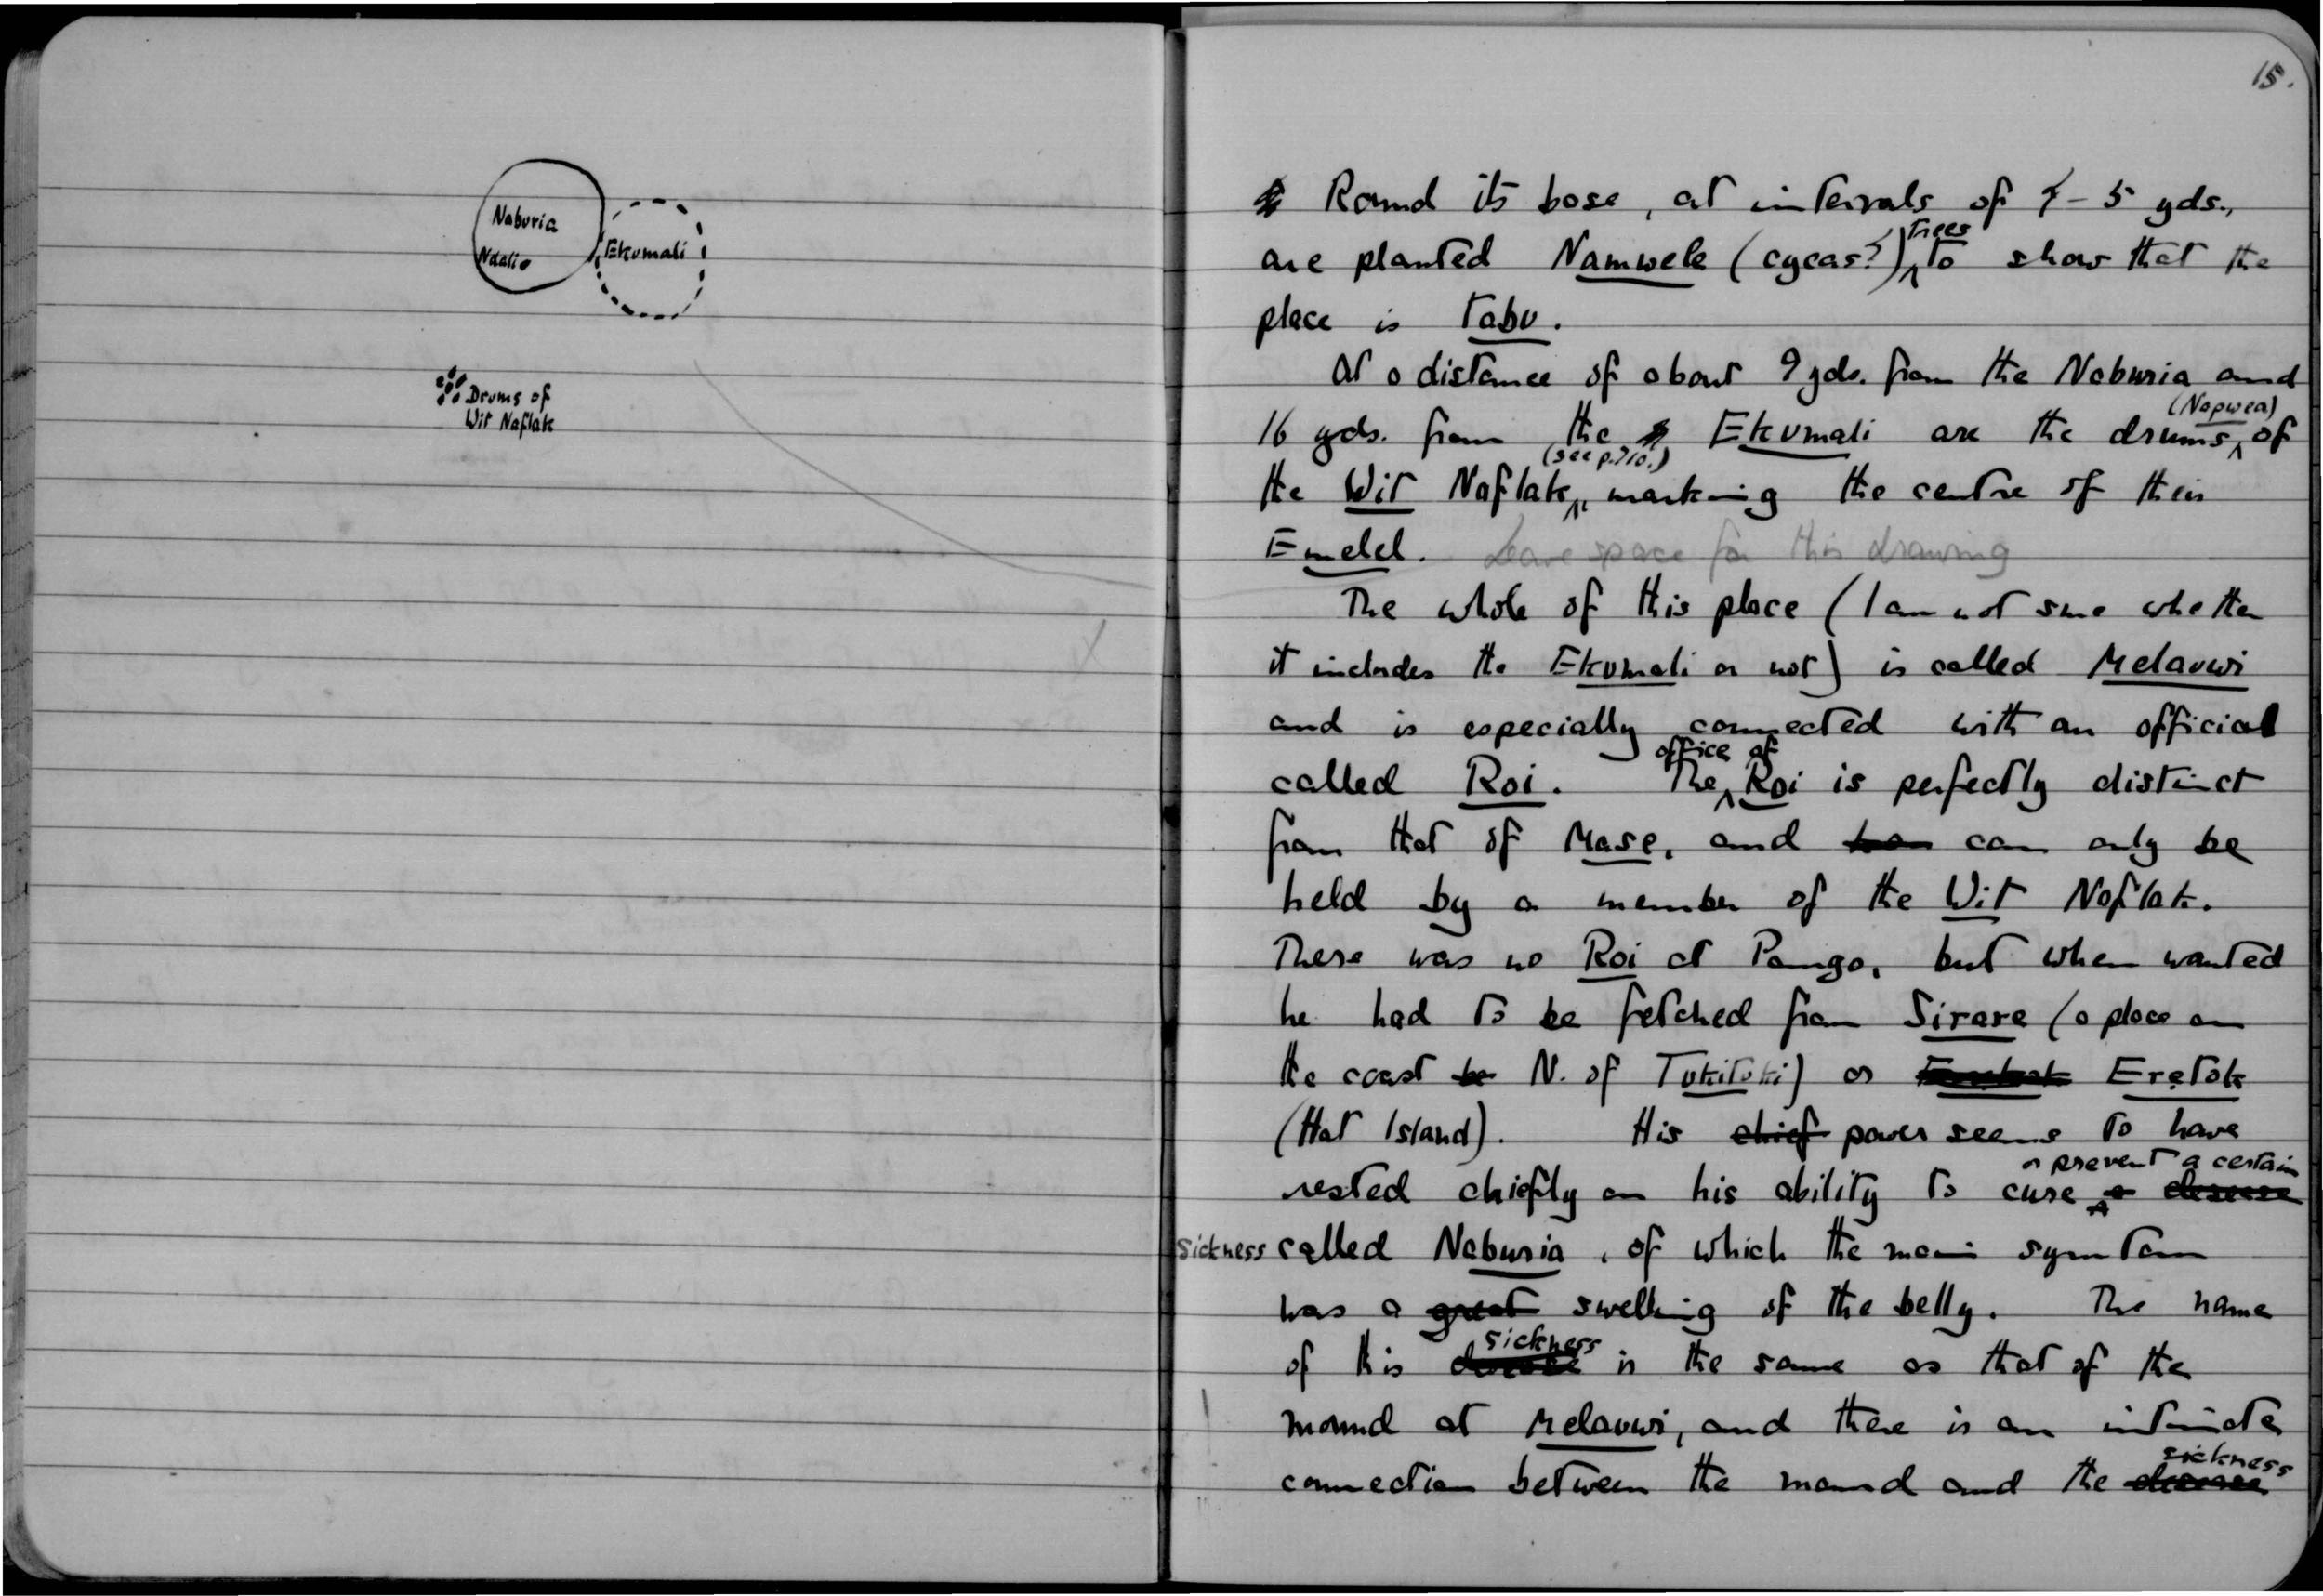 Naburia
Ndalio
Ekumali
Drums of
Wit Naflak
15.
Round its base, at intervals of 4-5 yds.,
are planted Namwele (cycas?) trees to show that the
place is tabu.
At a distance of about 9 yds. from the Naburia and
16 yds. from the Ekumali are the drums (Napwea) of
the Wit Naflak (see p.710.), marking the centre of their
Emelel. Leave space for this drawing
The whole of this place (I am not sure whether
it includes the Ekumali or not) is called Melauwi
and is especially connected with an official
called Roi. The office of Roi is perfectly distinct
from that of Mase, and can only be
held by a member of the Wit Naflak.
There was no Roi at Pango, but when wanted
he had to be fetched from Sirare (a place on
the coast N. of Tukituki) or Eretok
(Hat Island). His chief power seems to have
rested chiefly on his ability to cure or prevent a certain disease
sickness called Naburia, of which the main symtom
was a great swelling of the belly. The name
of this disease sickness is the same as that of the
mound at Melauwi, and there is an intimate
connection between the mound and the disease sickness